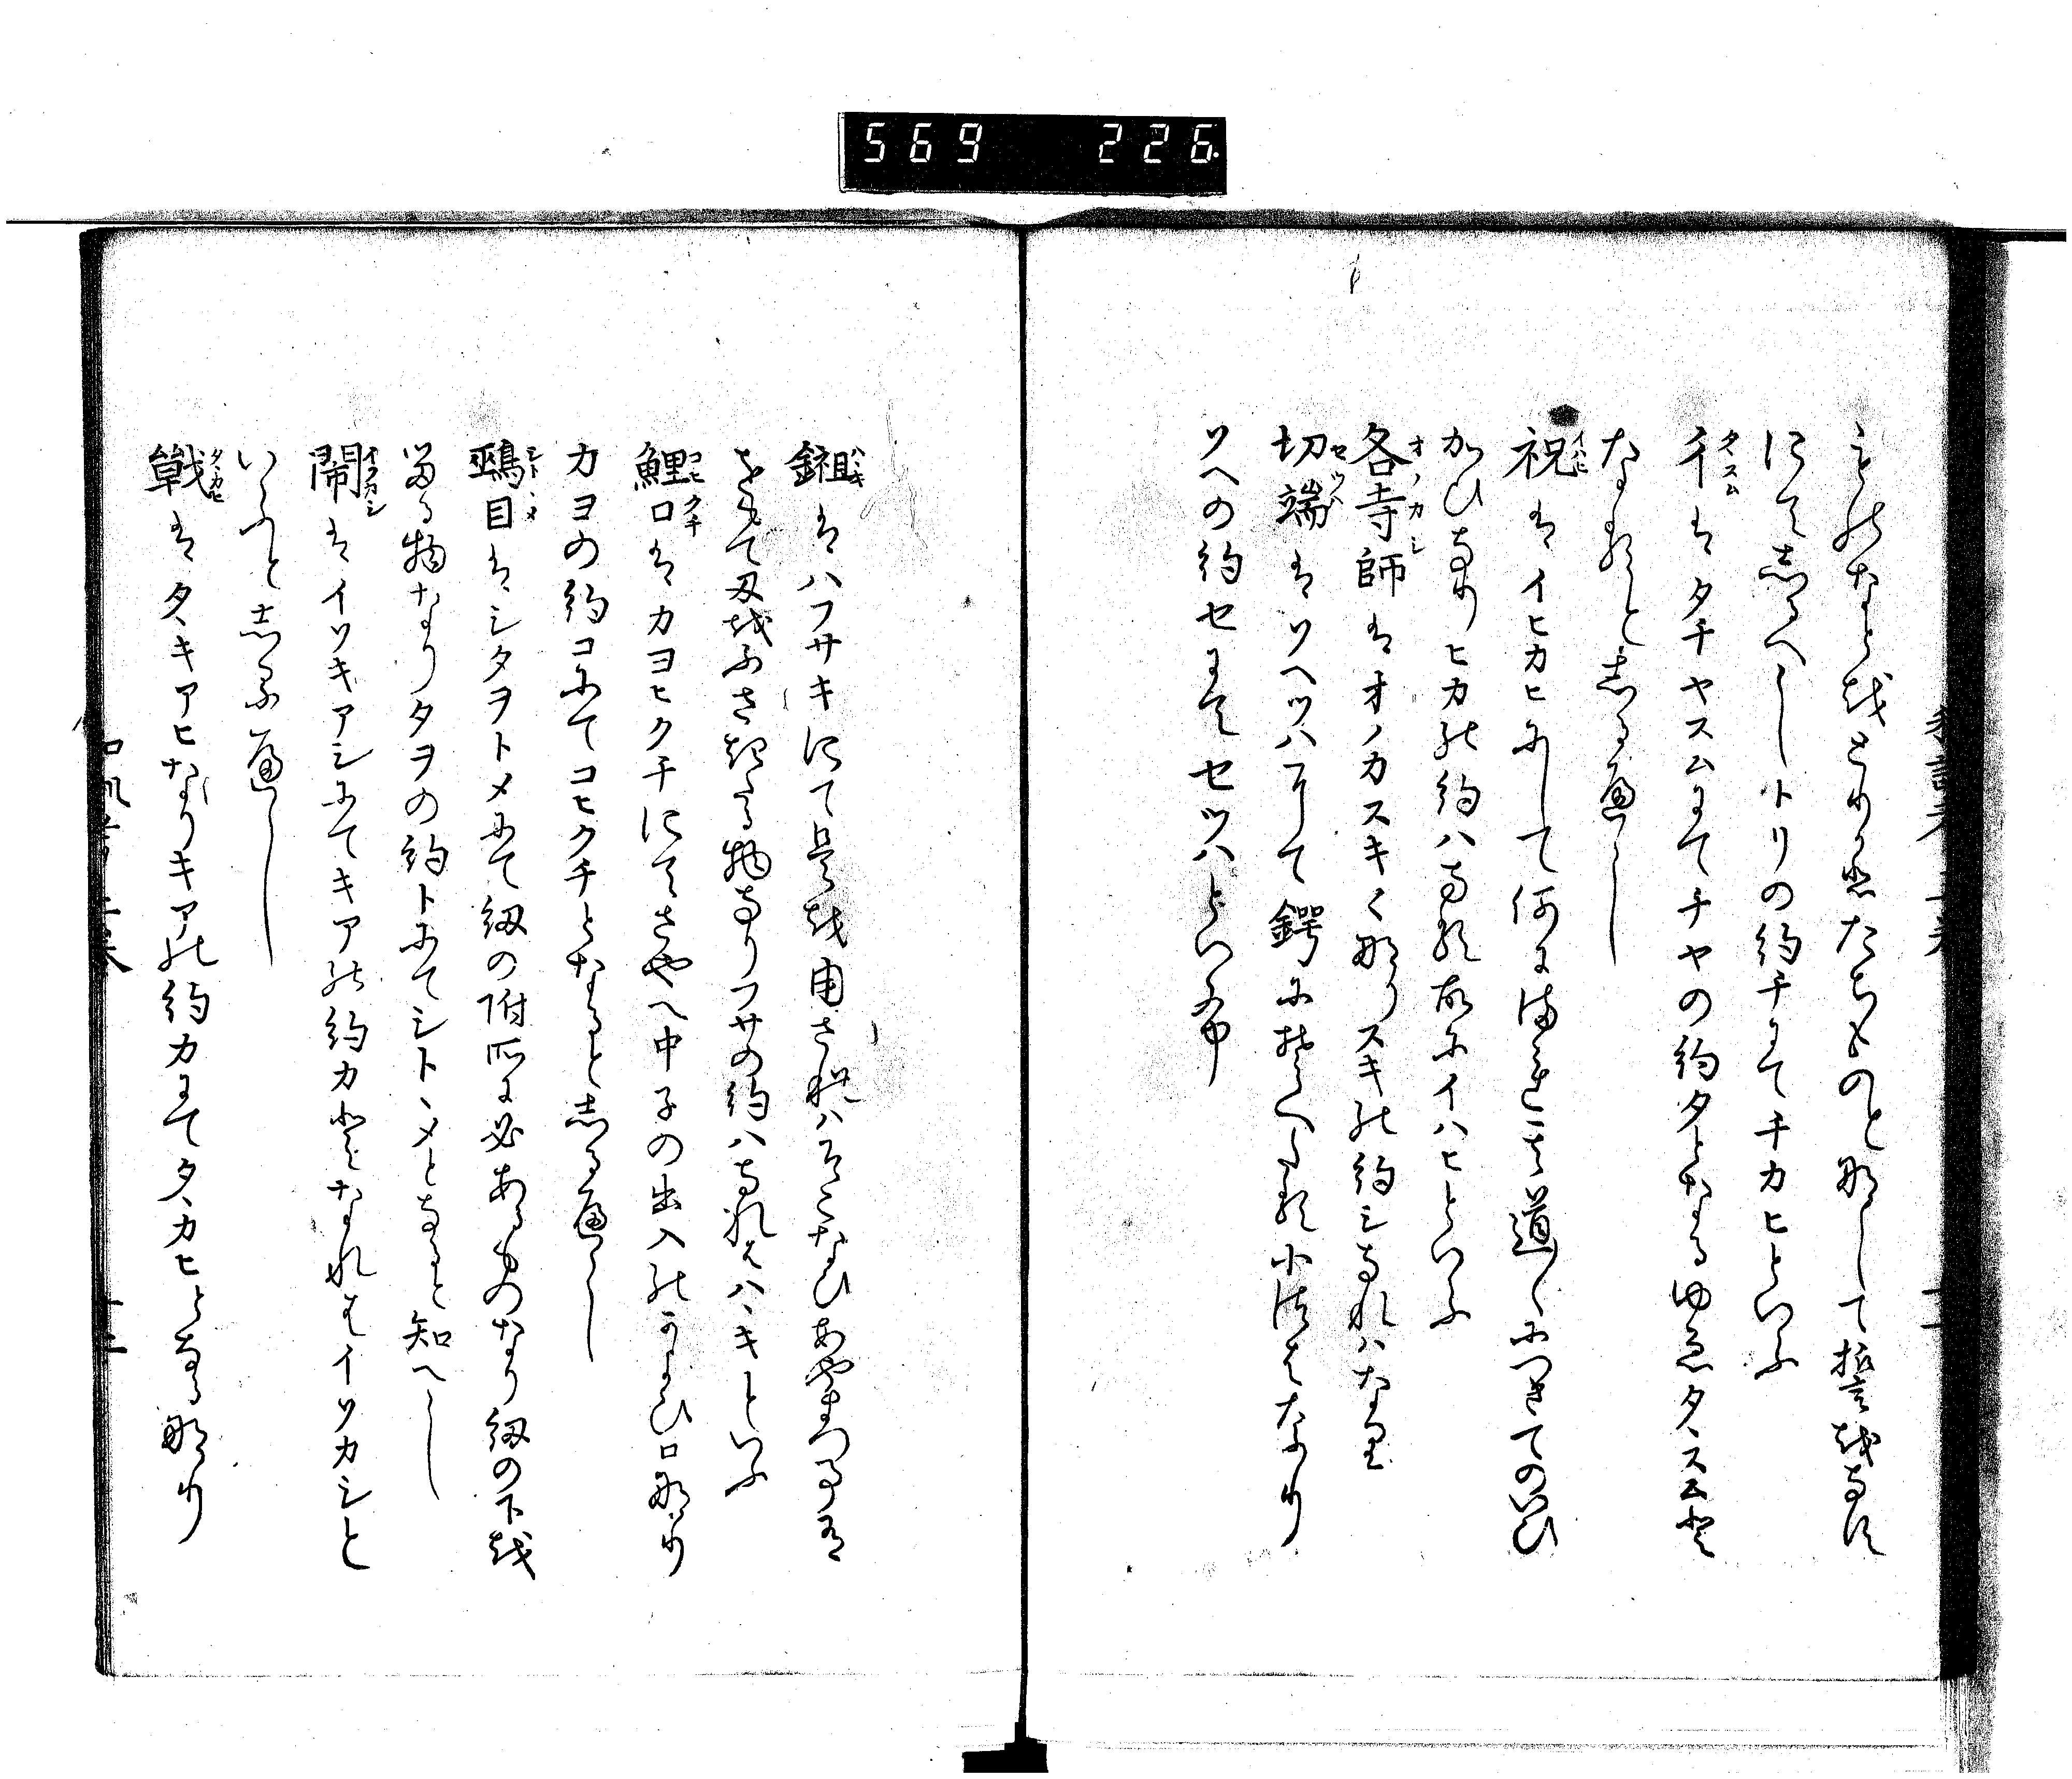 569 226
にてしるへしトリの約チにてチカヒといふ
タヽスム
イはタチヤスムにてチヤの約タとなるゆゑタヽスムと
なれりとしるへし
イハヒ
祝はイヒカヒにして何にまれ其道〳〵につきてのいひ
かひなりヒカの約ハなる故にイハヒといふ
オノカシ
各寺師はオノカスキ〳〵なりスキの約シなれハなり
セツハ
切端はツヘツハにして鍔にそへたる小はたなり
ツヘの約セにてセツハといふ
ハヽキ
鎺はハフサキにて是を用されハそこなひあやまつ事有
をもて刄をふさきたる物なりフサの約ハなれはハヽキといふ
コヒクチ
鯉口はカヨヒクチにてさやへ中子の出入のかよひ口なり
カヨの約コにてコヒクチとなるとしるへし
シトヽメ
鵐目はシタヲトメにて紐の附所に必あるものなり紐の下を
留る物なりタヲの約トにてシトヽメとなると知へし
イソカシ
閙はイソキアシにてキアの約カとなれはイソカシと
いふとしるへし
タヽカヒ
戦はタヽキアヒなりキアの約カにてタヽカヒとなるなり